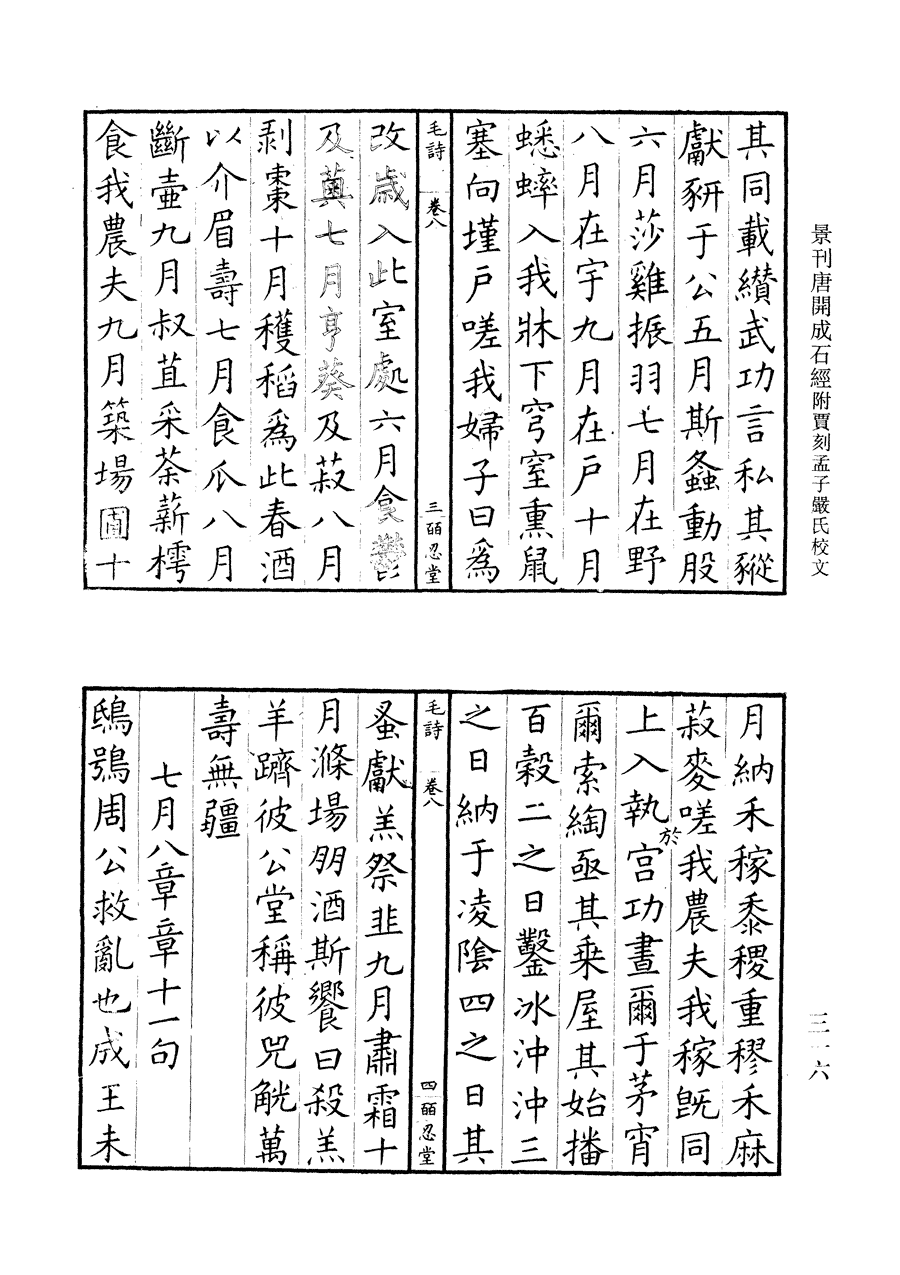 景刊唐開成石經附賈刻孟子嚴氏校文
其同載纉武功言私其豵
獻豜于公五月斯螽動股
六月莎雞振羽七月在野
八月在宇九月在戶十月
蟋蟀入我牀下穹窒熏鼠
塞向墐戶嗟我婦子曰為
毛詩 卷八 三 皕忍堂
改歲入此室處六月食鬱
及薁七月亨葵及菽八月
剥棗十月穫稻為此春酒
以介眉壽七月食瓜八月
斷壷九月叔苴采荼薪樗
食我農夫九月築場圃十
月納禾稼黍稷重穋禾麻
菽麥嗟我農夫我稼旣同
上入執於宫功晝爾于茅宵
爾索綯亟其乗屋其始播
百穀二之日鑿冰沖沖三
之日納于凌陰四之日其
毛詩 卷八 四 皕忍堂
蚤獻羔祭韭九月肅霜十
月滌場朋酒斯饗曰殺羔
羊躋彼公堂稱彼兕觥萬
壽無疆
七月八章章十一句
鴟鴞周公救亂也成王未
三一六